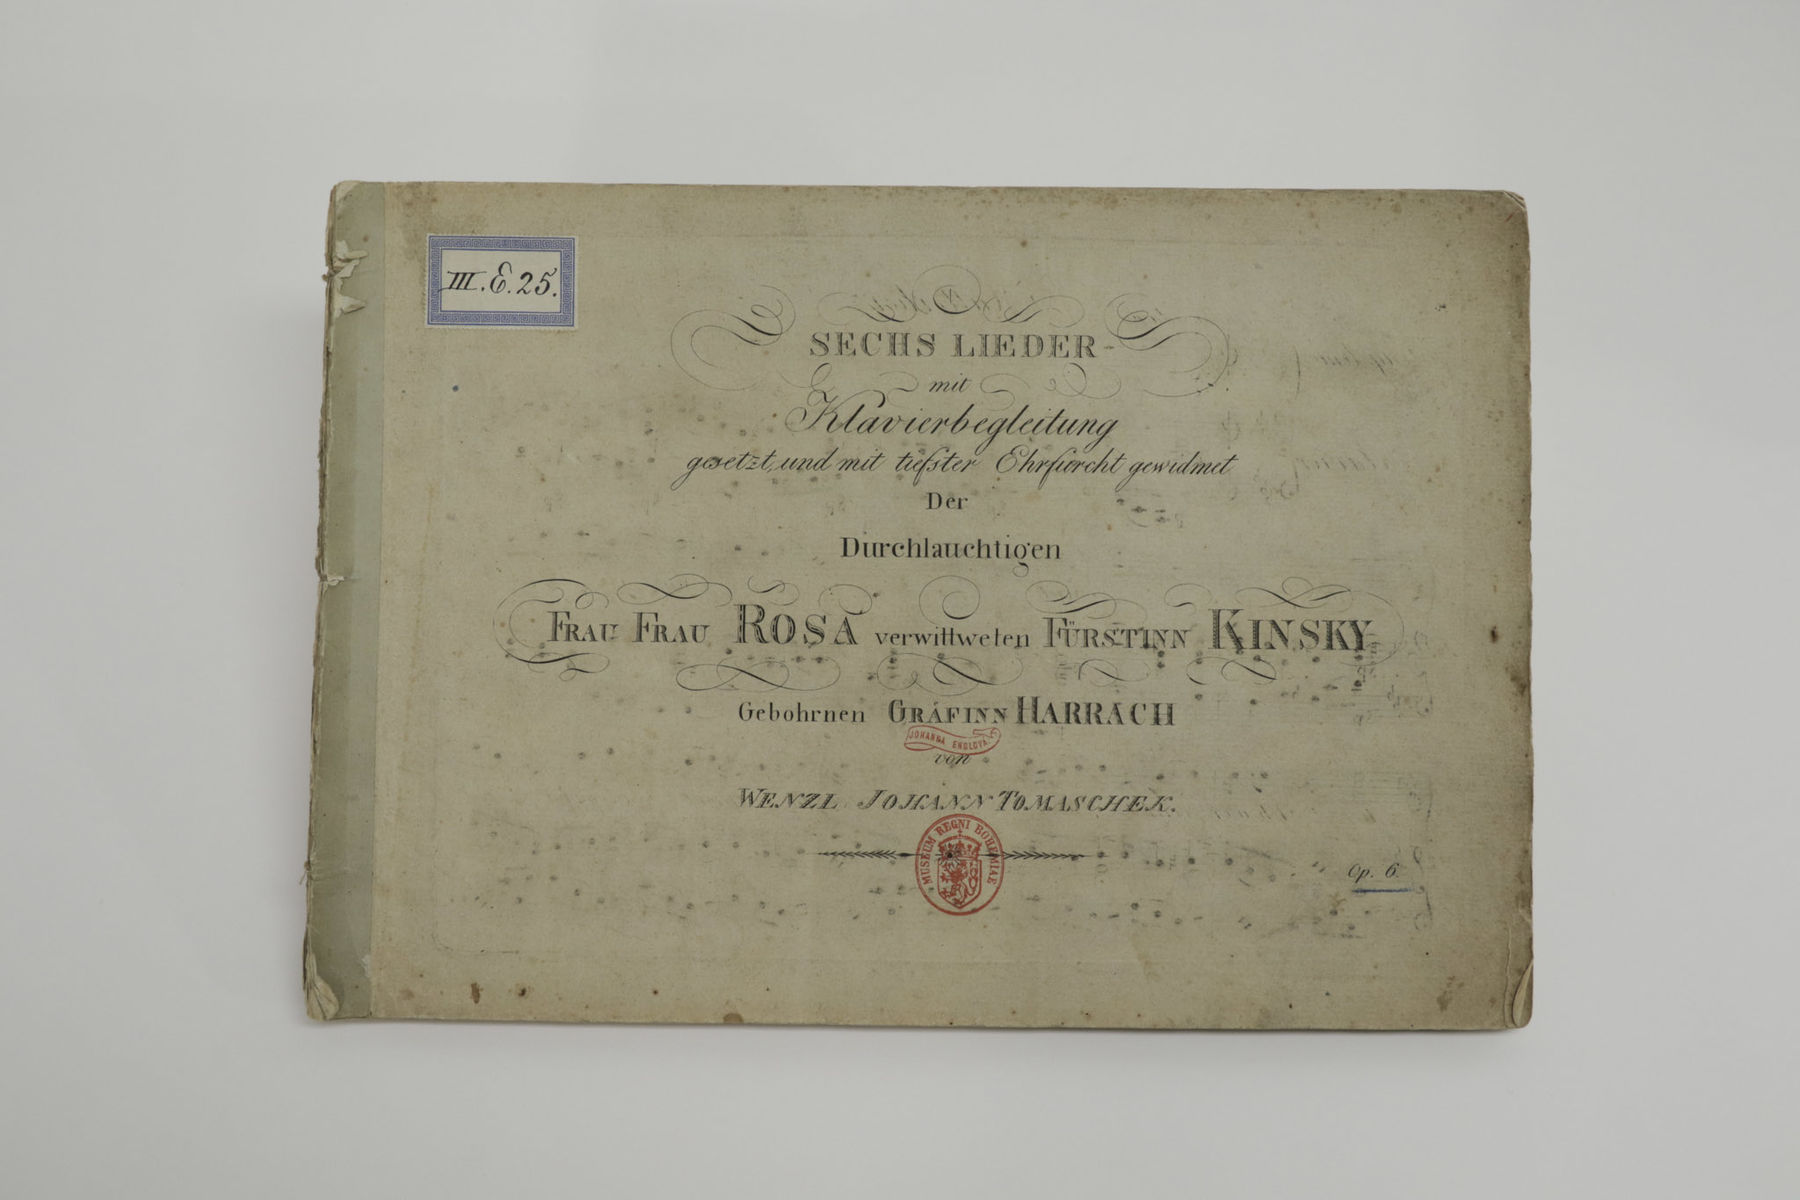 III. E. 25.
SECHS LIEDER
mit
Klavierbegleitung
gesetzt, und mit tiefster Ehrfurcht gewidmet
Der
Durchlauchtigen
FRAU FRAU ROSA verwittweten FÜRSTINN KINSKY
Gebohrnen GRÄFINN HARRACH
JOHANNA ENGLOVA
von
WENZL JOHANN TOMASCHEK.
MUSEUM REGNI BOHEMIAE
Op. 6.